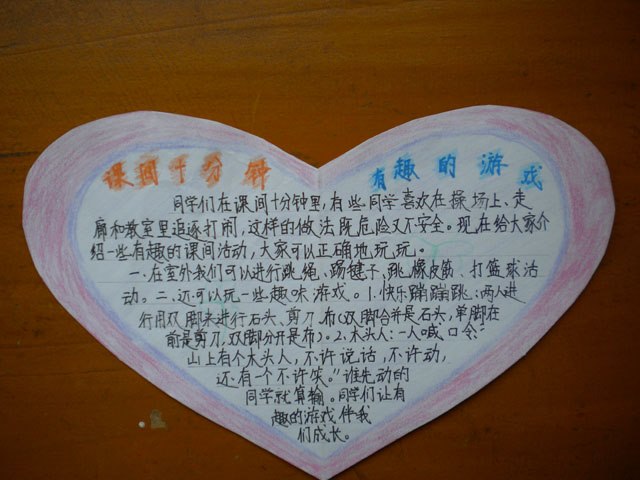 课间十分钟 有趣的游戏
同学们在课间十分钟里,有些同学喜欢在操场上、走
廊和教室里追逐打闹,这样的做法既危险又不安全。现在给大家介
绍一些有趣的课间活动,大家可以正确地玩玩。
一.在室外我们可以进行跳绳、踢毽子、跳橡皮筋、打篮球活
动。二.还可以玩一些趣味游戏。1.快乐蹦蹦跳:两人进
行用双脚来进行石头、剪刀、布(双脚合并是石头,单脚在
前是剪刀,双脚分开是布)。2.木头人:一人喊口令:“
山上有个木头人,不许说话,不许动,
还有一个不许笑。”谁先动的
同学就算输。同学们让有
趣的游戏伴我
们成长。